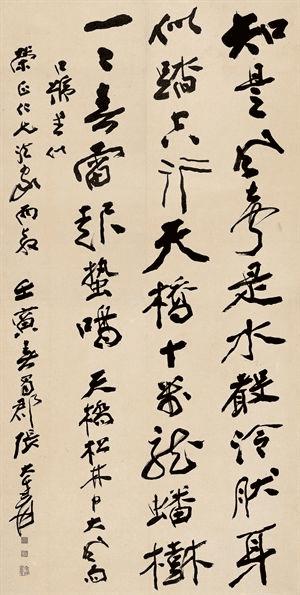 知是風聲是水聲泠肰身
似踏空行天橋十里龍蟠樹
一一春雷起蟄鳴 天橋松林中大風雨
口號書似
榮正仁兄法家兩教 壬寅春蜀郡張大千爰